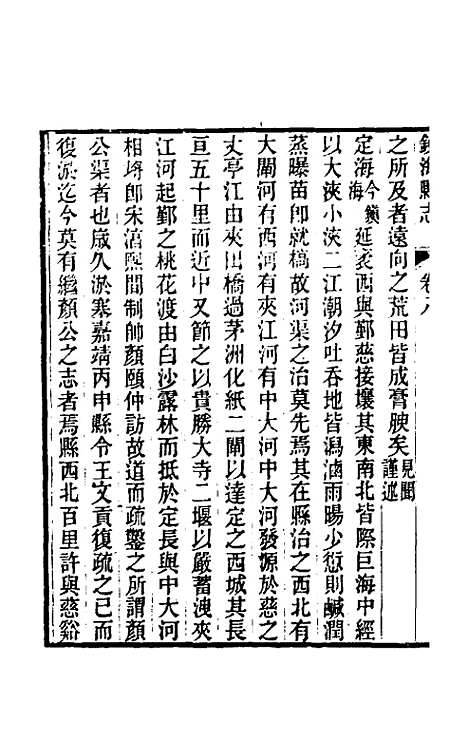 鎮海縣志　卷八
之所及者遠向之荒田皆成膏腴矣見聞謹述
定海今鎮海延袤西與鄞慈接壤其東南北皆際巨海中經
以大浹小浹二江潮汐吐吞地皆潟滷雨暘少愆則鹹潤
蒸曝苗卽就槁故河渠之治莫先焉其在縣治之西北有
大閘河有西河有夾江河有中大河中大河發源於慈之
丈亭江由夾田橋過茅洲化紙二閘以達定之西城其長
亘五十里而近中又節之以貴勝大寺二堰以嚴蓄洩夾
江河起鄞之桃花渡由白沙露林而抵於定長與中大河
相埓卽宋淳熙間制帥顏頤仲訪故道而疏鑿之所謂顏
公渠者也歲久淤塞嘉靖丙申縣令王文貢復疏之已而
復淤迄今莫有繼顏公之志者焉縣西北百里許與慈谿